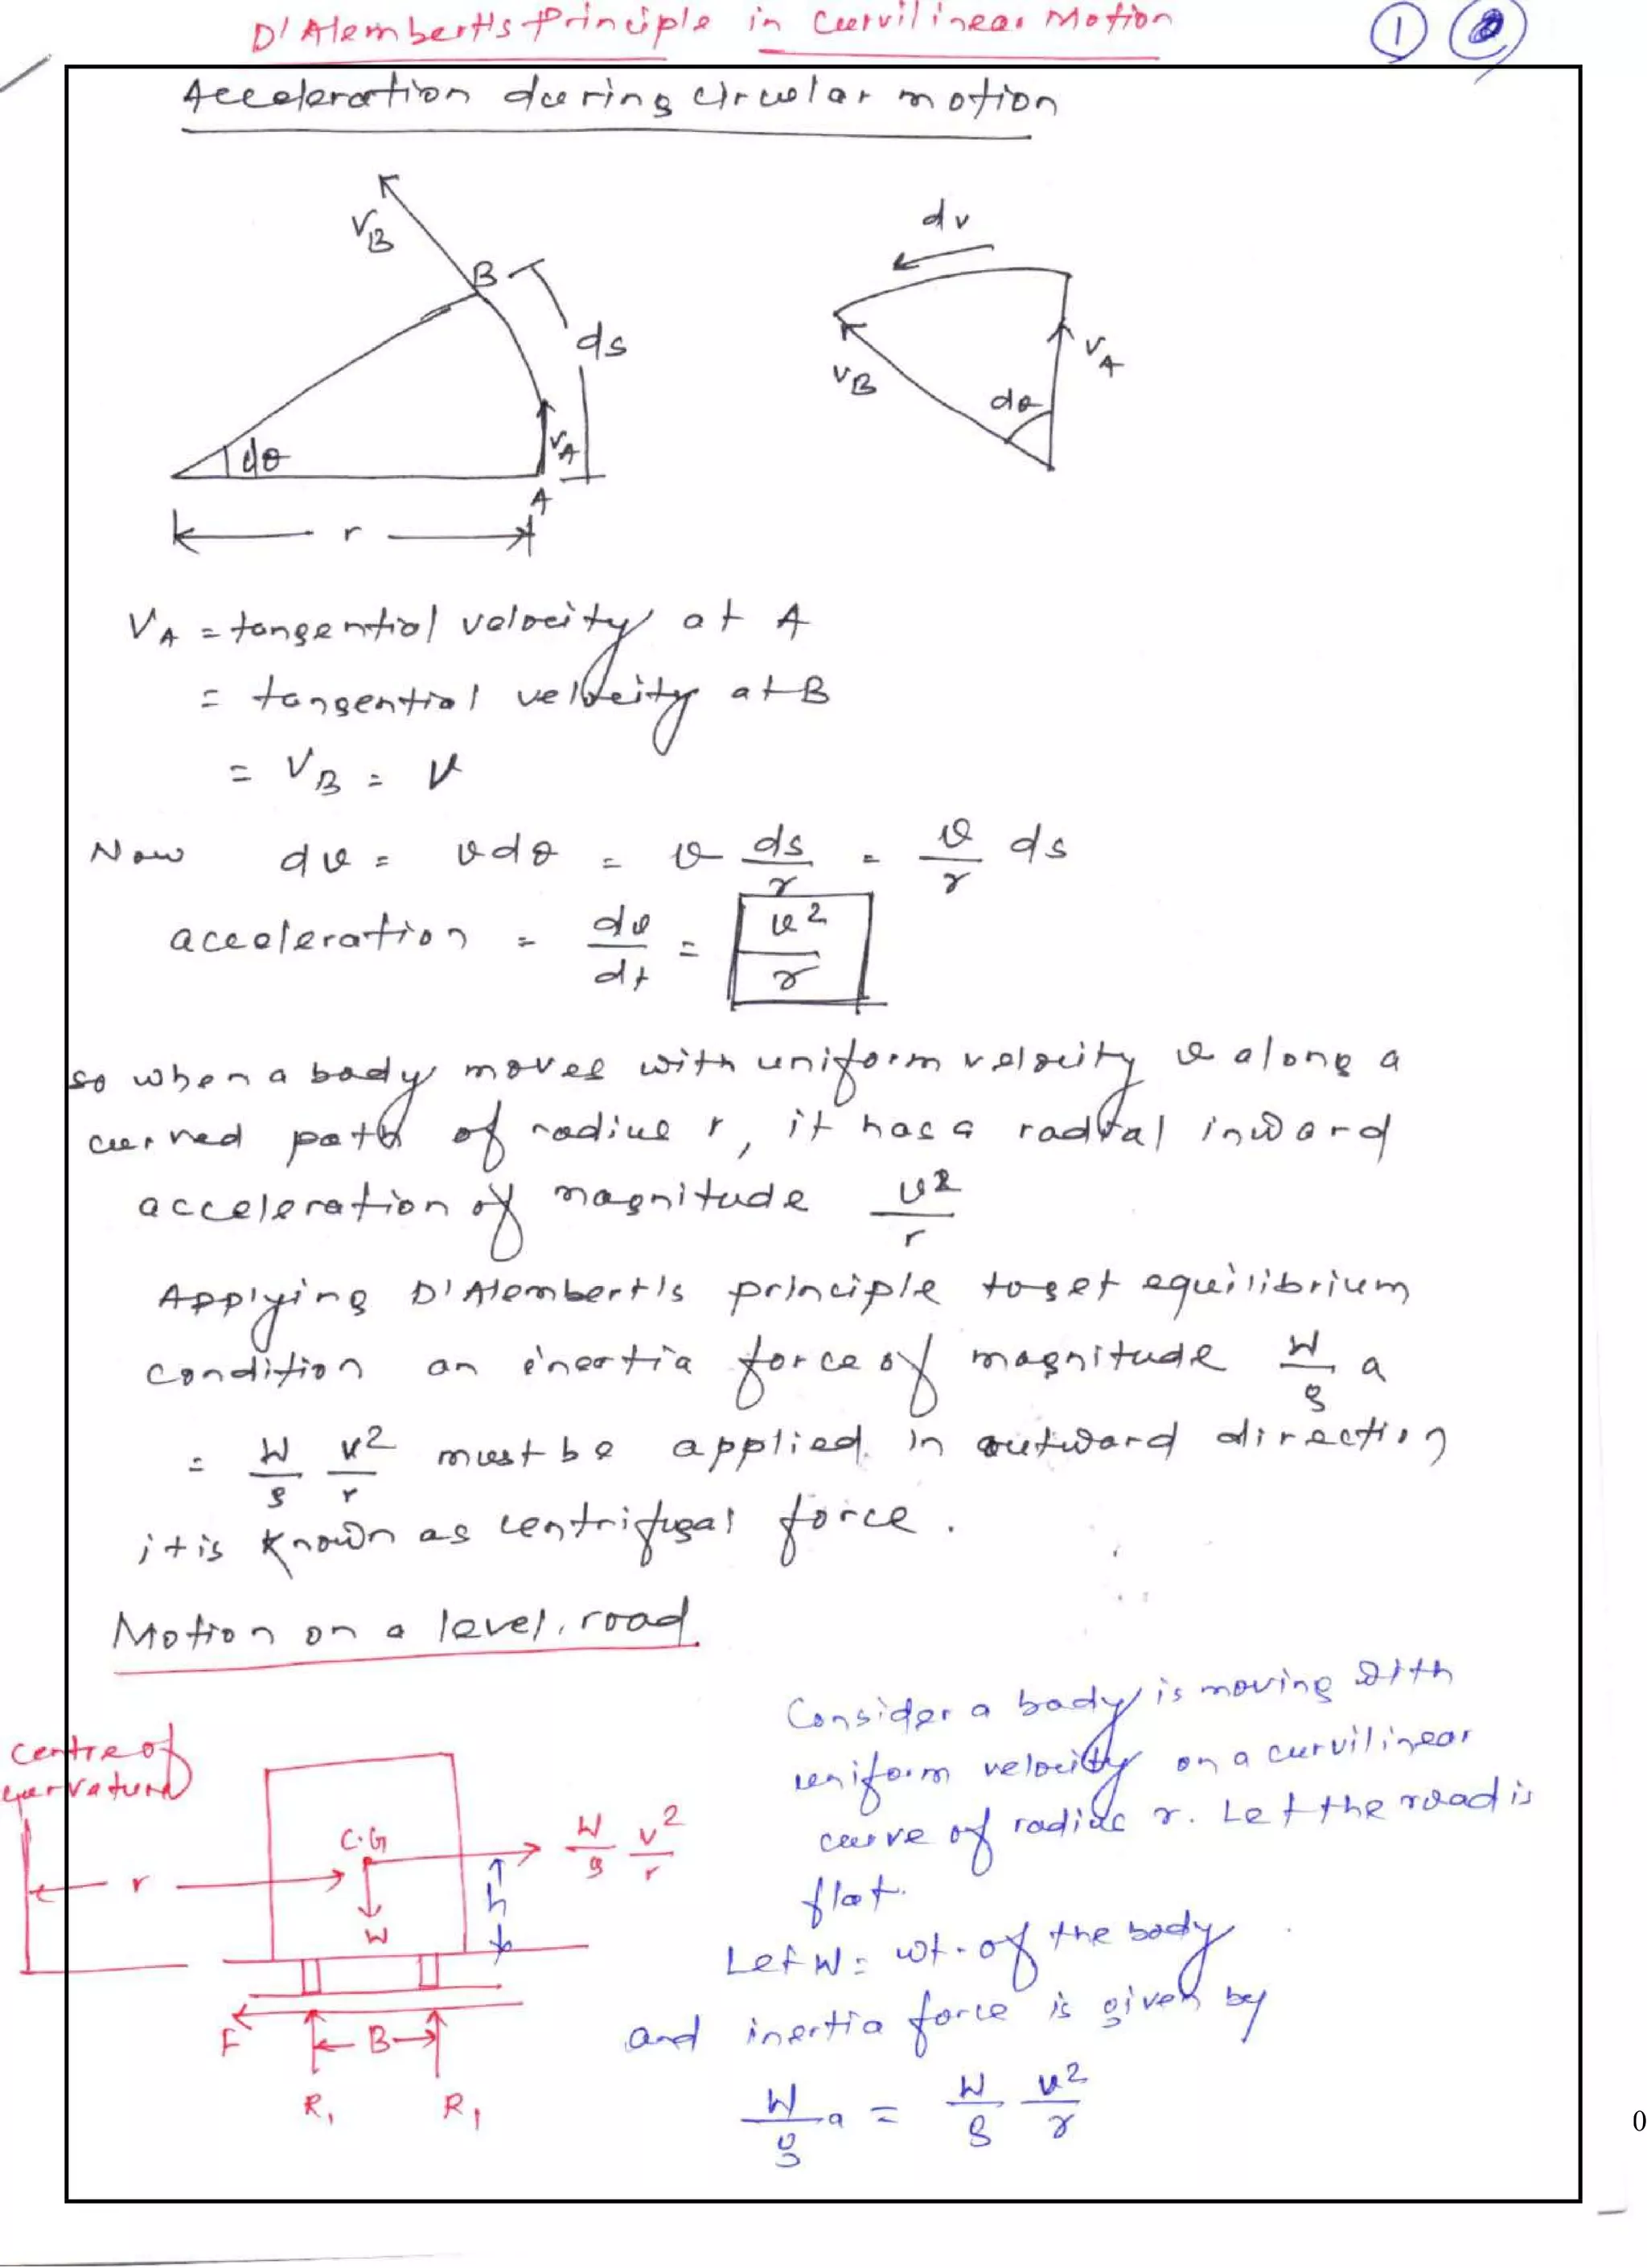 D'Alembert's Principle in Curvilinear Motion
1
Acceleration during circular motion
V_B
B
ds
dθ
V_A
A
r
dv
V_B
V_A
dθ
V_A = tangential velocity at A
= tangential velocity at B
= V_B = V
Now dv = v dθ = v ds/r = v/r ds
acceleration = dv/dt = v²/r
so when a body moves with uniform velocity v along a
curved path of radius r, it has a radial inward
acceleration of magnitude v²/r
Applying D'Alembert's principle to get equilibrium
condition an inertia force of magnitude W/g a
= W/g v²/r must be applied in outward direction
it is known as centrifugal force.
Motion on a level road
Centre of
curvature
C.G
W/g v²/r
r
h
W
F
B
R₁
R₁
Consider a body is moving with
uniform velocity on a curvilinear
curve of radius r. Let the road is
flat.
Let W = wt. of the body
and inertia force is given by
W/g a = W/g v²/r
0